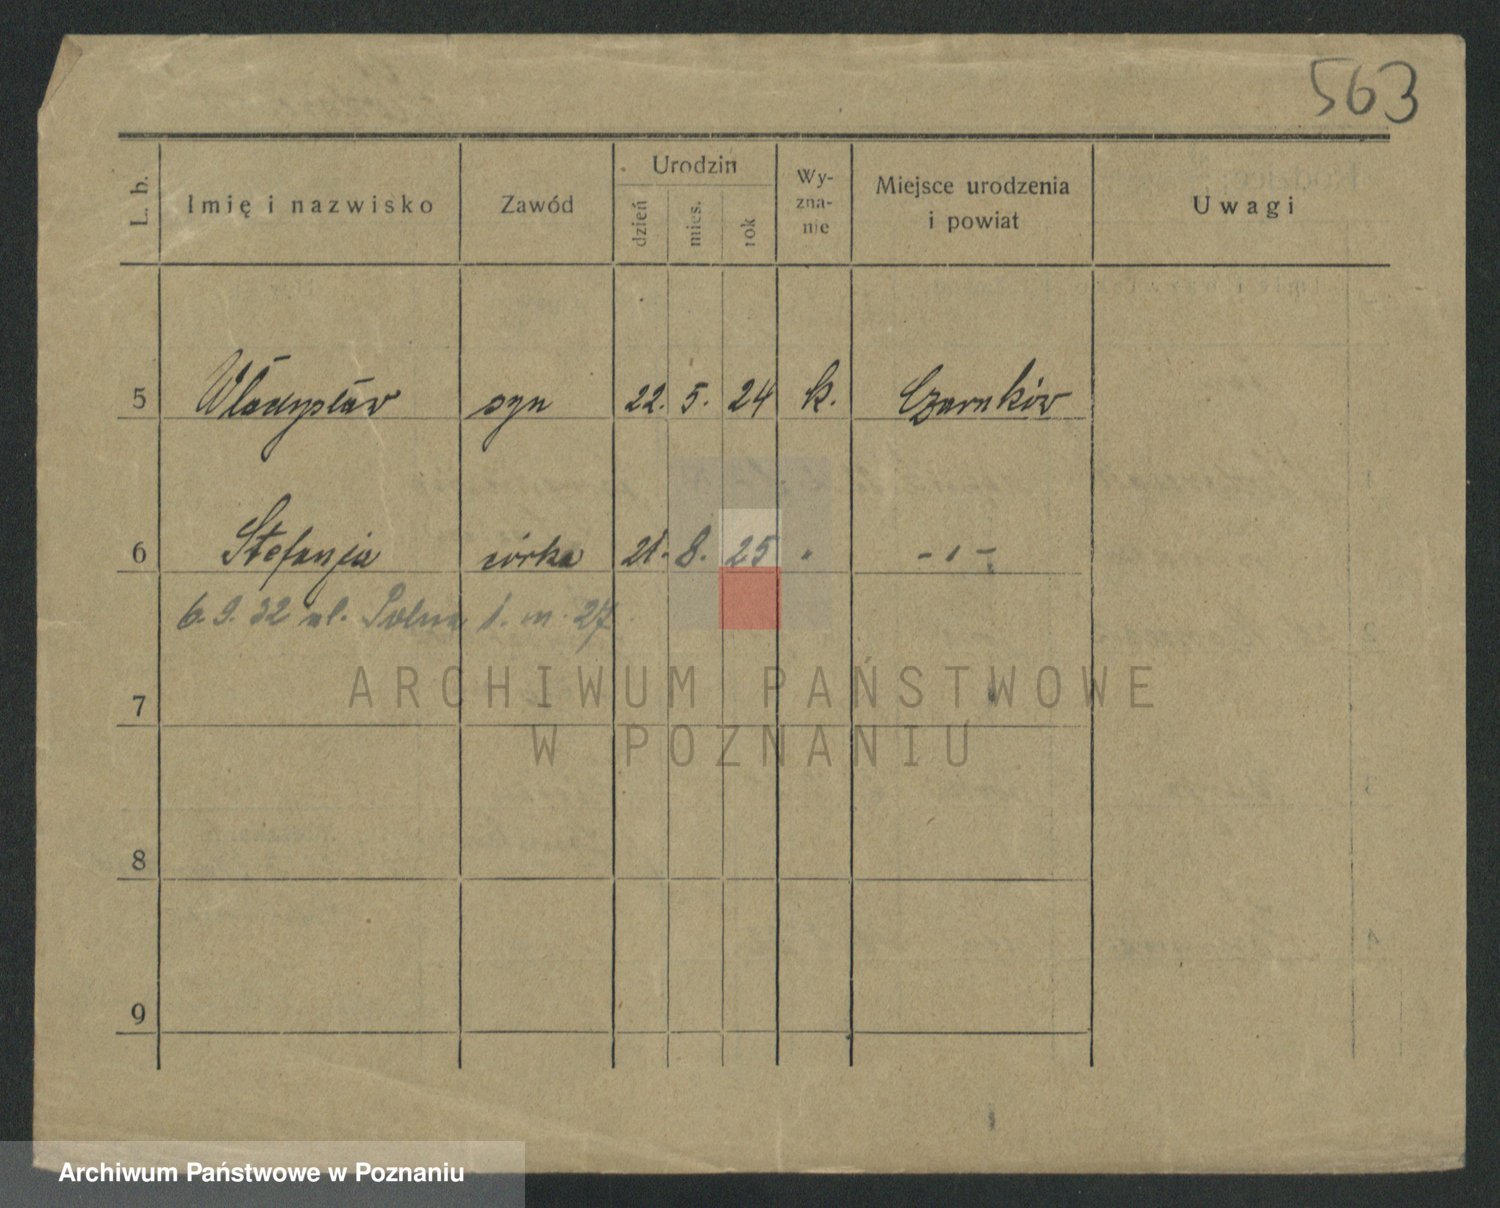 563
L. b. Imię i nazwisko Zawód Urodzin dzień mies. rok Wy-zna-nie Miejsce urodzenia i powiat Uwagi
5 Władysław syn 22. 5. 24 k. Czarnków
6 Stefanja córka 21. 8. 25 " -"-
6.9.32 ul. Polna 1. m. 27
7
8
9
ARCHIWUM PAŃSTWOWE
W POZNANIU
Archiwum Państwowe w Poznaniu